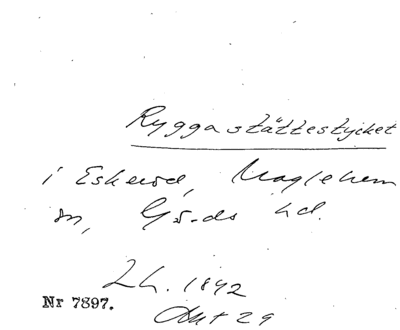 Ryggastättestycket
i Eskeröd, Maglehem
sn, Gärds hd.
Lh. 1892
Nr 7897.
Akt 29